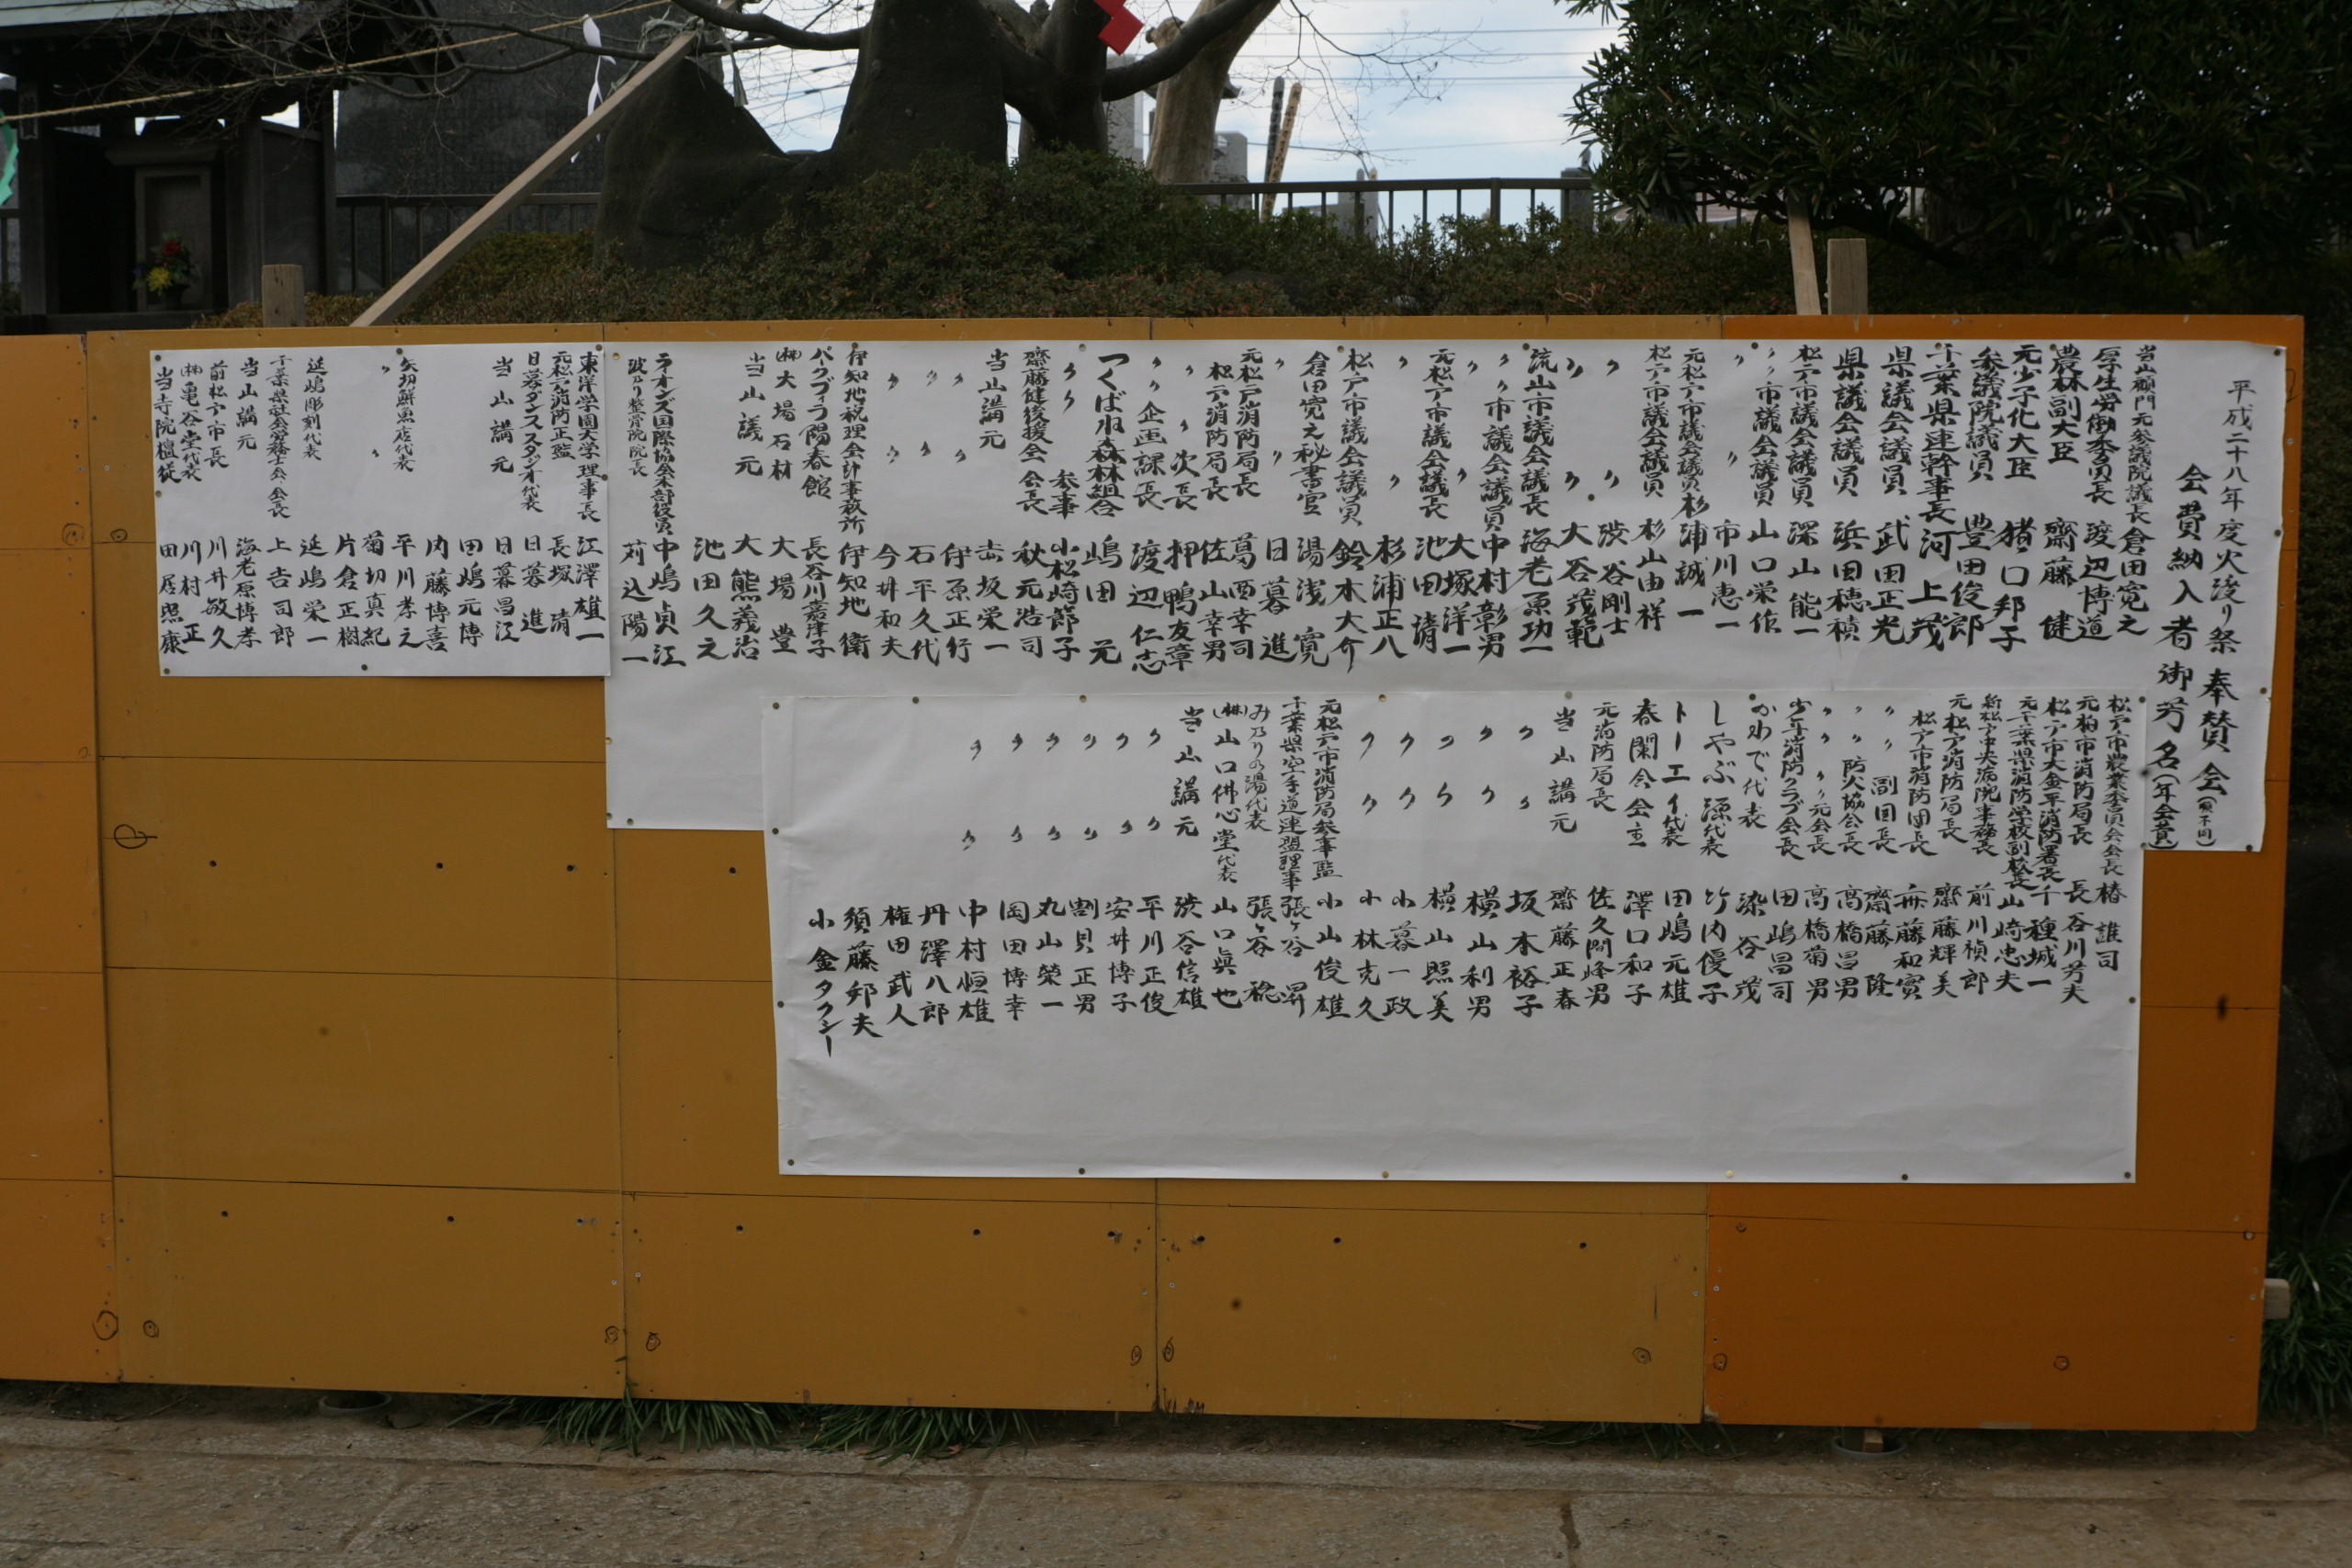 平成二十八年度火渡り祭奉賛会(順不同)
会費納入者御芳名(年会費)
当山顧問元参議院議長 倉田寛之
厚生労働委員長 渡辺博道
農林副大臣 齋藤健
元少子化大臣 猪口邦子
参議院議員 豊田俊郎
千葉県連幹事長 河上茂
県議会議員 武田正光
県議会議員 浜田穂積
松戸市議会議員 深山能一
〃市議会議員 山口栄作
〃〃 市川恵一
元松戸市議会議員 杉浦誠一
松戸市議会議員 杉山由祥
〃〃 渋谷剛士
〃〃 大谷茂範
流山市議会議長 海老原功一
〃〃市議会議員 中村彰男
〃〃 大塚洋一
元松戸市議会議長 池田清
〃〃 杉浦正八
松戸市議会議員 鈴木大介
倉田寛之秘書官 湯浅寛
〃〃 日暮進
元松戸消防局長 葛西幸司
松戸消防局長 佐山幸男
〃〃次長 押鴨友章
〃〃企画課長 渡辺仁志
つくばね森林組合 嶋田元
〃〃参事 小松崎節子
齋藤健後援会会長 秋元浩司
当山講元 赤坂栄一
〃〃 伊原正行
〃〃 石平久代
〃〃 今井和夫
伊知地税理会計事務所 伊知地衛
パークヴィラ陽春館 長谷川嘉津子
(株)大場石材 大場豊
当山議元 大熊義治
池田久之
ライオンズ国際協会本部役員 中嶋貞江
波乃り整骨院院長 苅込陽一
東洋学園大学理事長 江澤雄一
元松戸消防正監 長塚清
日暮ダンススタジオ代表 日暮進
当山講元 日暮昌江
田嶋元博
内藤博喜
矢切鮮魚店代表 平川孝之
〃〃 菊切真紀
片倉正樹
延嶋彫刻代表 延嶋栄一
千葉県社会労務士会会長 上吉司郎
当山講元 海老原博孝
前松戸市長 川井敏久
(株)亀谷堂代表 川村正
当寺院檀徒 田居照康
松戸市農業委員会会長 椿誰司
元柏市消防局長 長谷川芳夫
松戸市大金平消防署長 千種城一
元千葉県消防学校副校長 山崎忠夫
新松戸中央病院事務長 前川禎郎
元松戸消防局長 齋藤輝美
松戸市消防団長 斉藤和實
〃〃副団長 齋藤隆
〃〃防火協会長 高橋昌男
〃〃〃元会長 高橋菊男
少年消防クラブ会長 田嶋昌司
かわで代表 染谷茂
しゃぶ源代表 竹内優子
トーエイ代表 田嶋元雄
春閑会会主 澤口和子
元消防局長 佐久間峰男
当山講元 齋藤正春
〃〃 坂本裕子
〃〃 横山利男
〃〃 横山照美
〃〃 小暮一政
〃〃 小林克久
元松戸市消防局参事監 小山俊雄
千葉県空手道連盟理事 張ヶ谷昇
みのりの湯代表 張ヶ谷稔
(株)山口佛心堂代表 山口眞也
当山講元 渋谷信雄
〃〃 平川正俊
〃〃 安井博子
〃〃 割貝正男
〃〃 丸山榮一
〃〃 岡田博幸
〃〃 中村恒雄
丹澤八郎
権田武人
須藤邦夫
小金タクシー